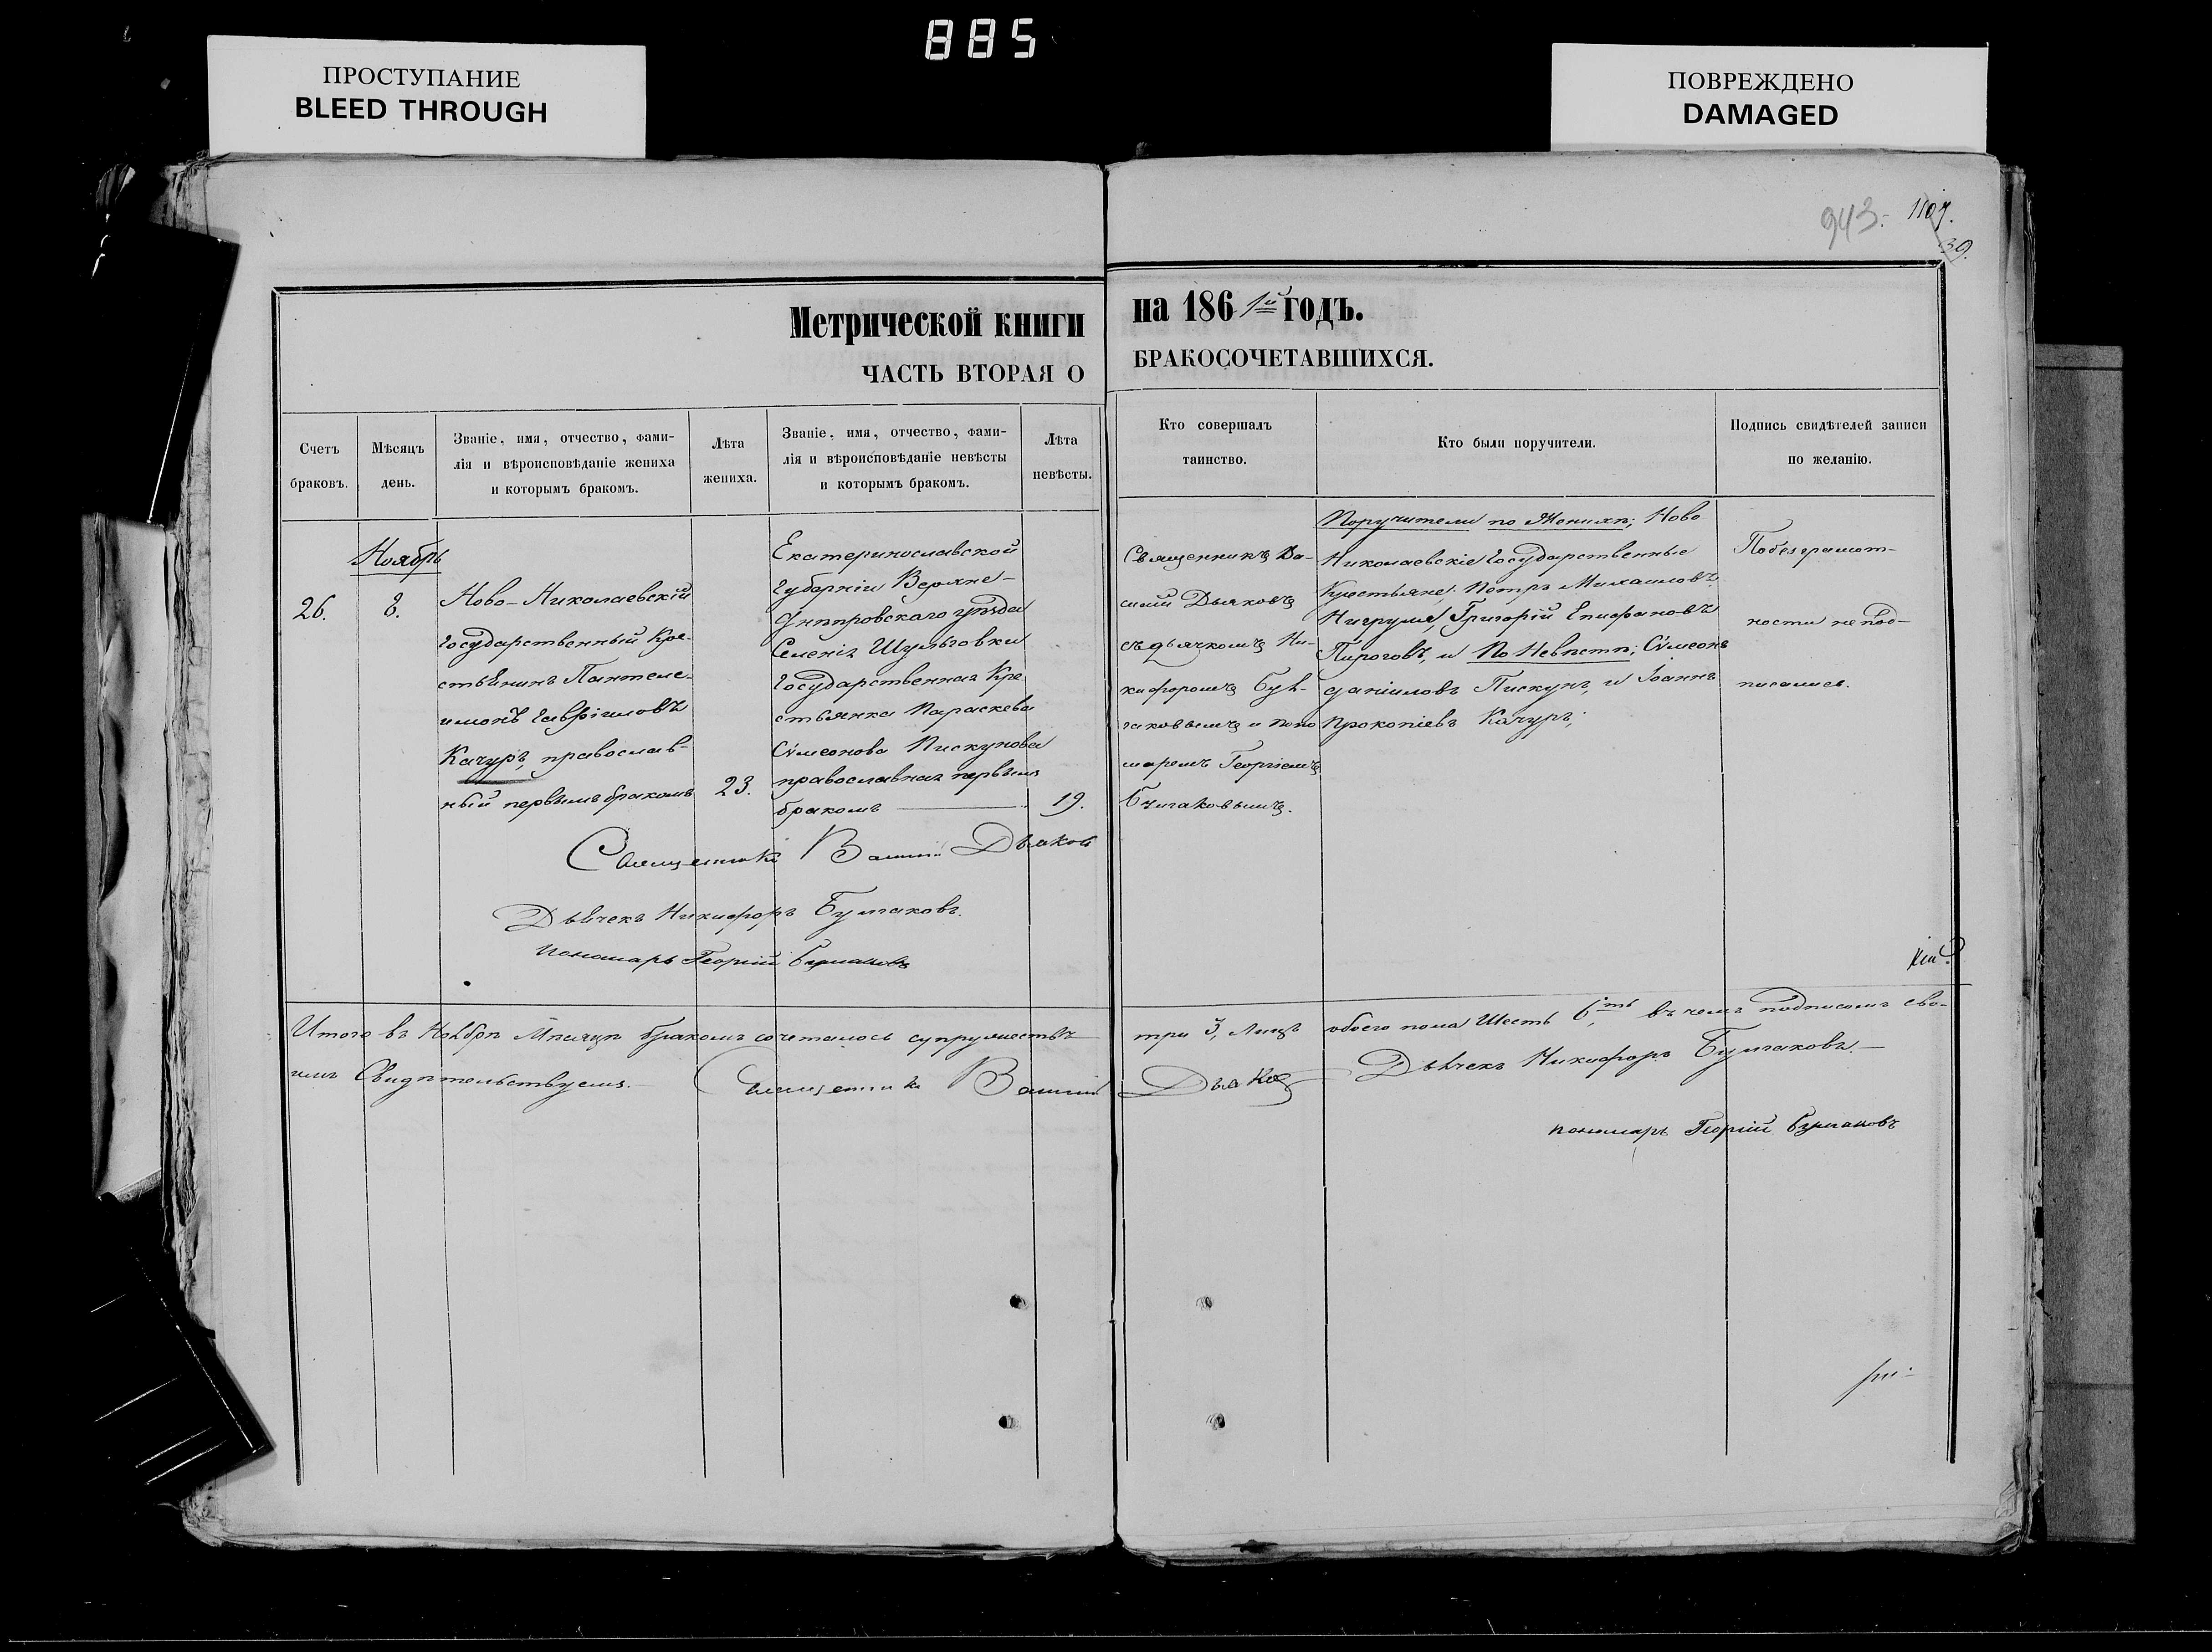 885
ПРОСТУПАНИЕ
BLEED THROUGH
ПОВРЕЖДЕНО
DAMAGED
943.
1107.
39.
Метрической книги на 186 1й годъ.
ЧАСТЬ ВТОРАЯ О БРАКОСОЧЕТАВШИХСЯ.
Счетъ
браковъ.
Мѣсяцъ
день.
Званіе, имя, отчество, фами-
лія и вѣроисповѣданіе жениха
и которымъ бракомъ.
Лѣта
жениха.
Званіе, имя, отчество, фами-
лія и вѣроисповѣданіе невѣсты
и которымъ бракомъ.
Лѣта
невѣсты.
Кто совершалъ
таинство.
Кто были поручители.
Подпись свидѣтелей записи
по желанію.
26.
Ноябрь
8.
Ново-Николаевскій
Государственный Кре-
стьянинъ Пантеле-
имонъ Гавріиловъ
Качуръ, православ-
ный первымъ бракомъ
23.
Екатеринославской
Губерніи Верхне-
днѣпровскаго уѣзда
Селенія Шульговки
Государственная Кре
стьянка Параскева
Сѵмеонова Пискунова
православная первымъ
бракомъ
19.
Священникъ Ва-
силій Дьяковъ
съ дьячкомъ Ни-
кифоромъ Бул-
гаковымъ и поно
маремъ Георгіемъ
Булгаковымъ.
Поручители по Женихѣ; Ново
Николаевскіе Государственные
Крестьяне; Петръ Михаиловъ
Григорій Епифановъ
Пироговъ, и По Невѣстѣ; Сѵмеонъ
Даніиловъ Пискунъ, и Іоаннъ
Прокопіевъ Качуръ;
По безграмот-
ности не под-
писались.
Священникъ Василій Дьяковъ
Дьячекъ Никифоръ Булгаковъ.
Пономарь Георгій Булгаковъ
Итого въ Ноябрѣ Мѣсяцѣ бракомъ сочеталось супружествъ три 3, Лицъ обоего пола Шесть 6ть, въ чемъ подписомъ сво-
имъ Свидѣтельствуемъ. Священникъ Василій Дьяковъ Дьячекъ Никифоръ Булгаковъ.
пономарь Георгій Булгаковъ